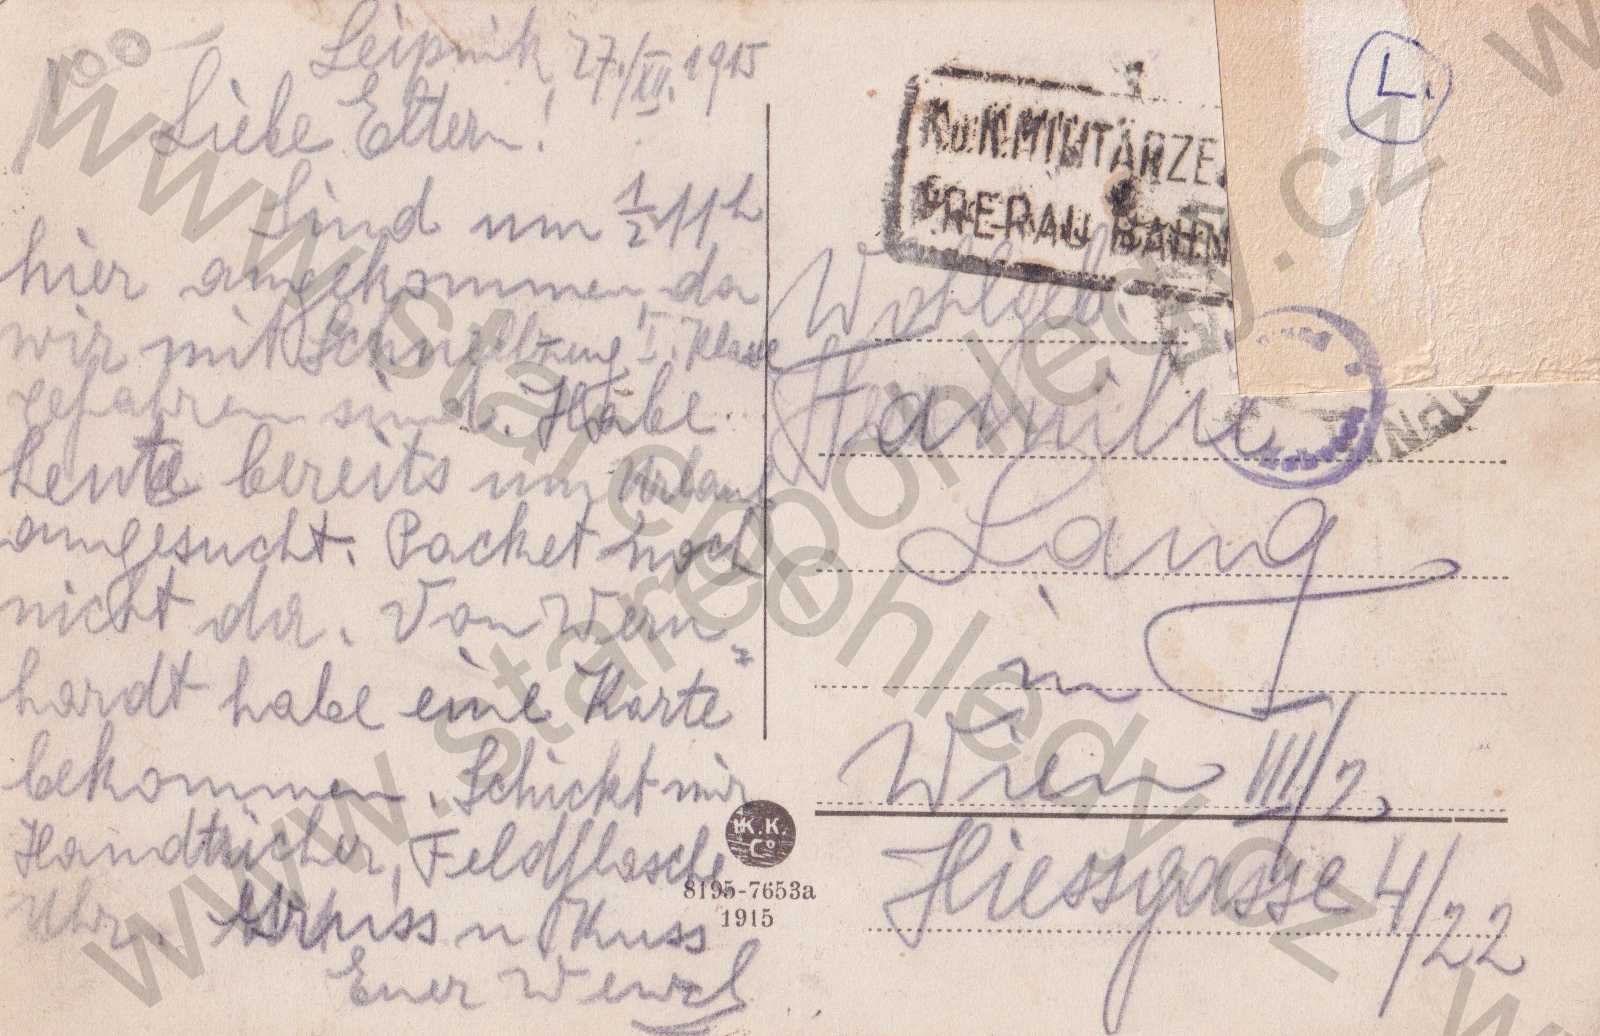 Leipnik, 27./XII. 1915
Liebe Eltern!
Sind um ½ 11h
hier angekommen, da
wir mit Schnellzug I. Klasse
gefahren sind. Habe
heute bereits um Urlaub
angesucht. Packet noch
nicht da. Von Wern=
hardt habe eine Karte
bekommen. Schickt mir
Handtücher, Feldflasche
Uhr. Gruss u Kuss
Euer
K.u.K. MILITÄRZE
PRERAU BAHN
L.
Wohlgeb.
Familie
Lang
in
Wien III/2
Hiessgasse 4/22
K.K.
Co
8195-7653a
1915
www.starepohledy.cz
www.starepohledy.cz